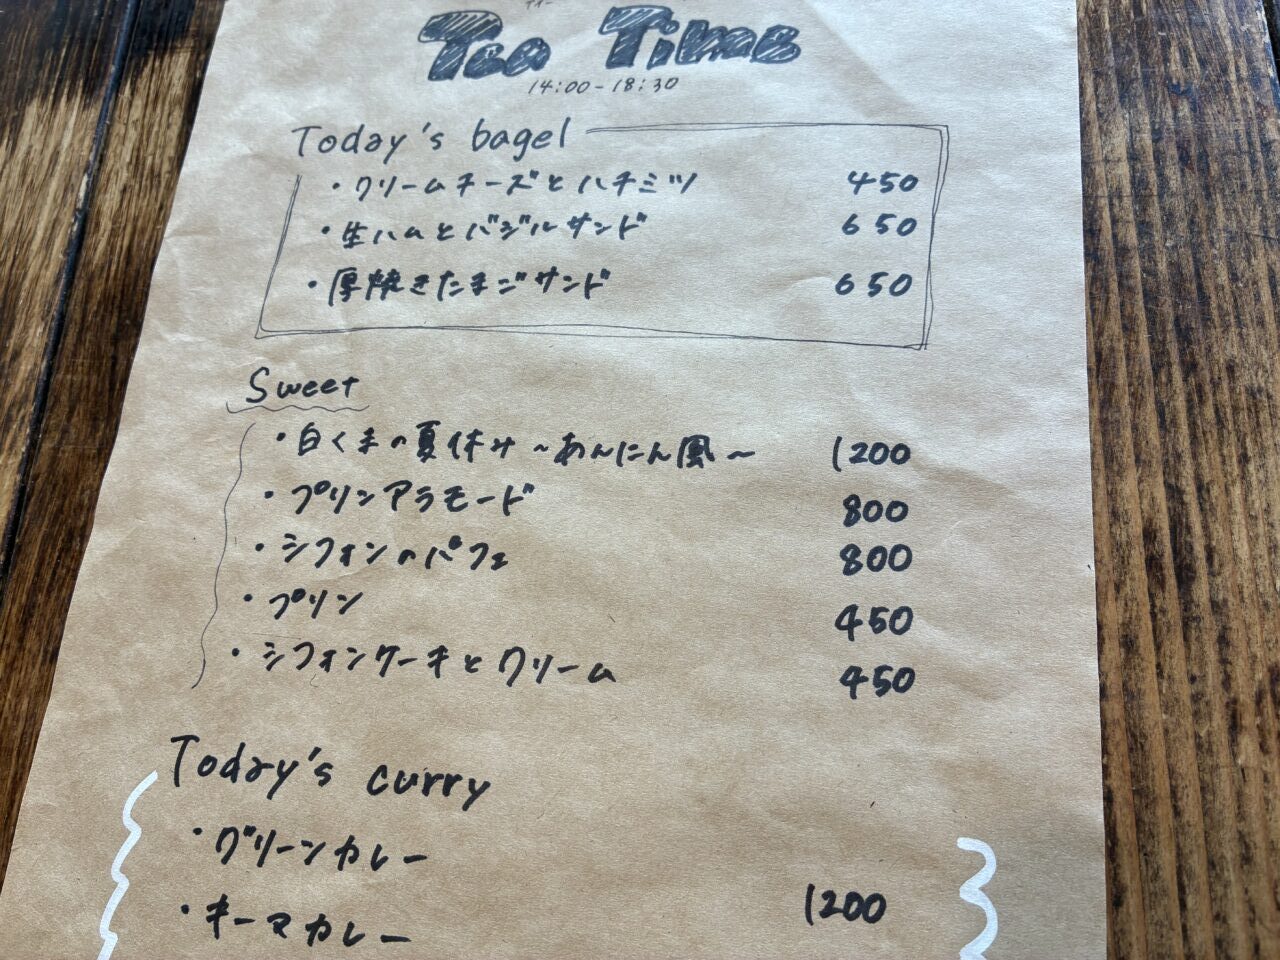 Tea Time
14:00-18:30
Today's bagel
・クリームチーズとハチミツ 450
・生ハムとバジルサンド 650
・厚焼きたまごサンド 650
Sweet
・白くまの夏休み～あんにん風～ 1200
・プリンアラモード 800
・シフォンのパフェ 800
・プリン 450
・シフォンケーキとクリーム 450
Today's curry
・グリーンカレー
・キーマカレー 1200